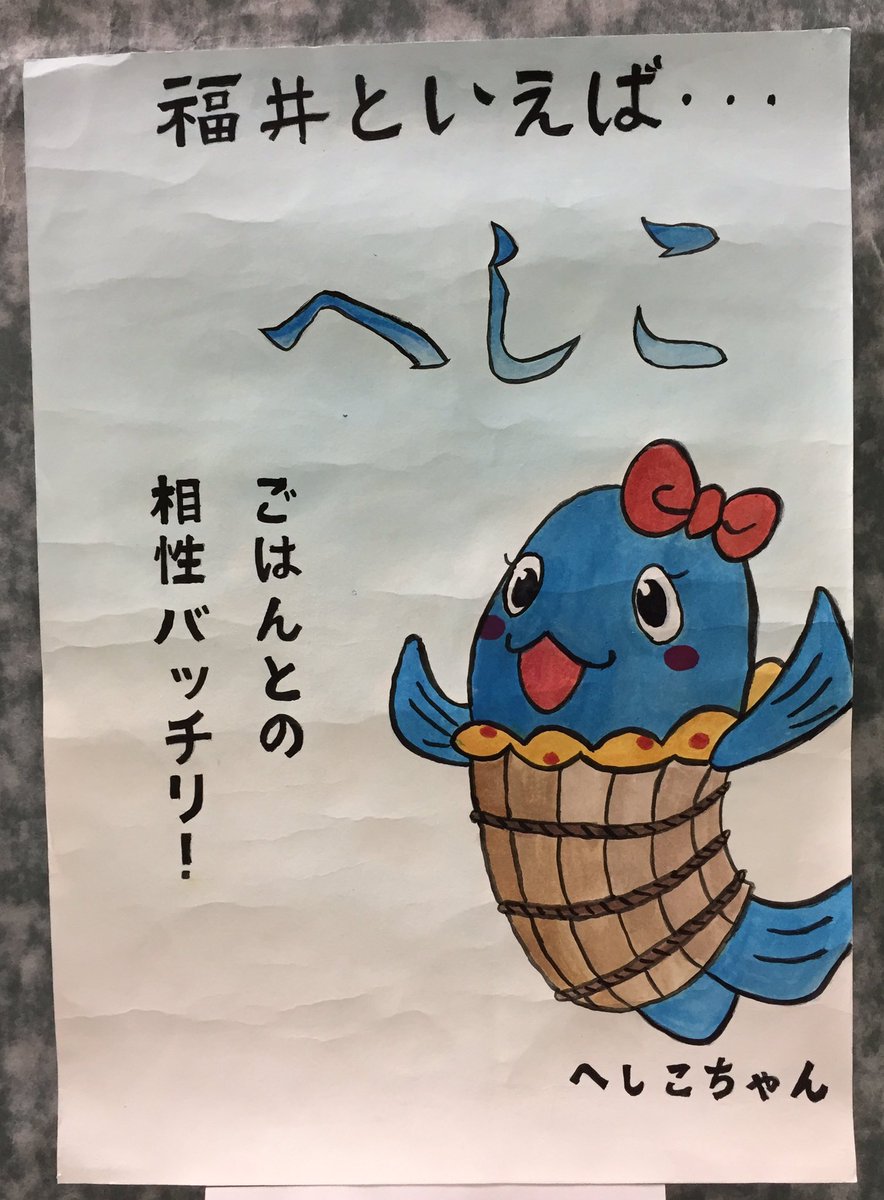 福井といえば・・・
へしこ
ごはんとの
相性バッチリ!
へしこちゃん